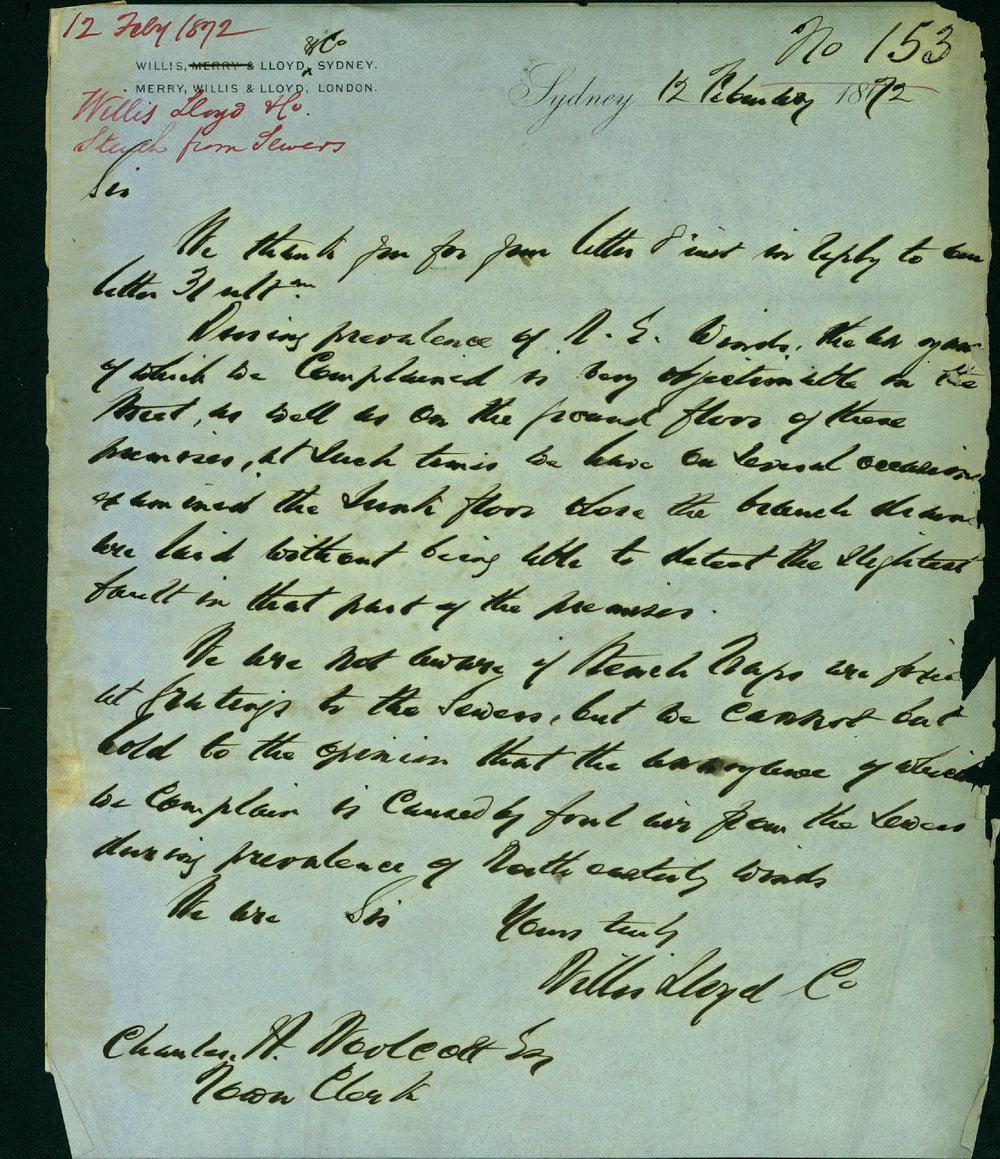 12 Feby 1872
No 153
WILLIS, MERRY & LLOYD, & Co SYDNEY.
MERRY, WILLIS & LLOYD, LONDON.
Sydney 12 February 1872
Willis Lloyd & Co.
Stench from Sewers
Sir
We thank you for your letter 8 inst in reply to our
letter 31 ult
During prevalence of N. E. Winds, the
of which we Complained is very objectionable in the
Street, as well as on the ground floor of these
premises, at Such times we have on Several occasions
examined the Sunk floor where the branch drains
are laid without being able to detect the Slightest
fault in that part of the premises.
We are not aware if Stench Traps are fixed
at gratings to the Sewers, but we cannot but
hold to the opinion that the annoyance of which
we Complain is Caused by foul air from the Sewers
during prevalence of North easterly winds
We are Sir Yours truly
Willis Lloyd Co
Charles H. Woolcott Esq
Town Clerk